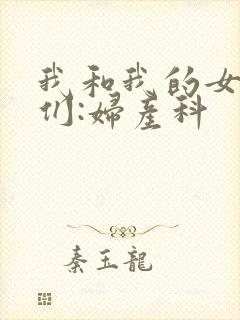 我和我的女
们:婦產科
秦玉龍